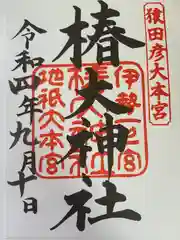 猿田彦大本宮
椿大神社
伊勢一之宮
地祇大本宮
令和四年九月十日